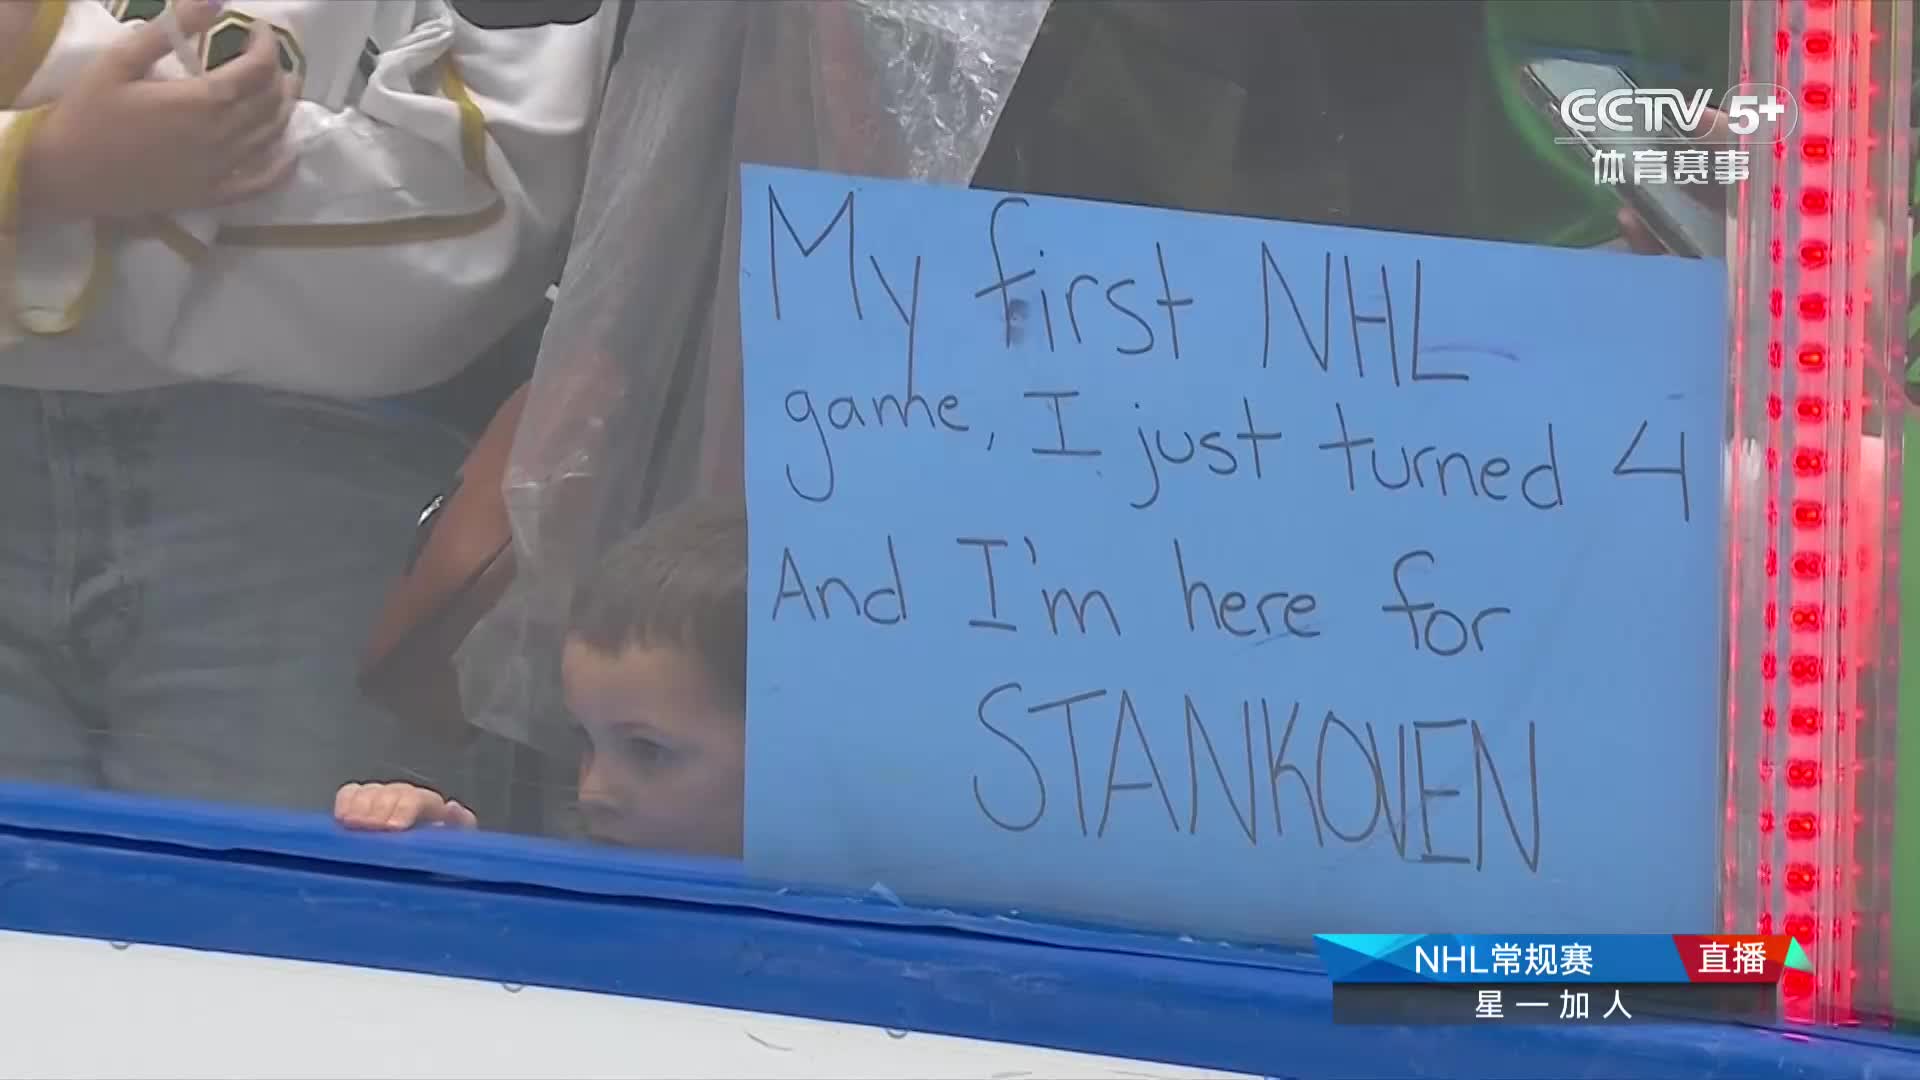 CCTV 5+
体育赛事
My first NHL
game, I just turned 4
And I'm here for
STANKOVEN
NHL常规赛 直播
星—加人